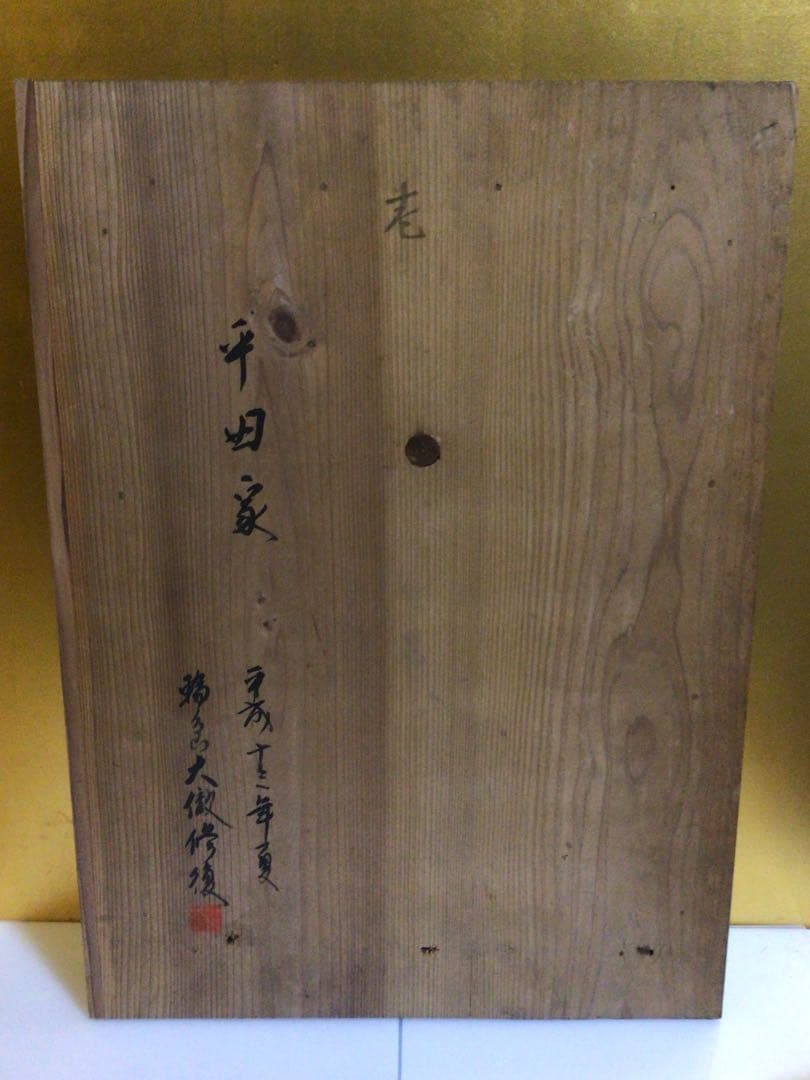 壱
平田家
平成十三年夏
大徹修復